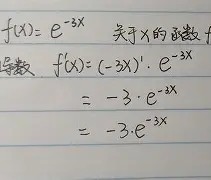 f(x) = e^{-3x} 关于x的函数 f
导数 f'(x) = (-3x)' · e^{-3x}
= -3 · e^{-3x}
= -3·e^{-3x}